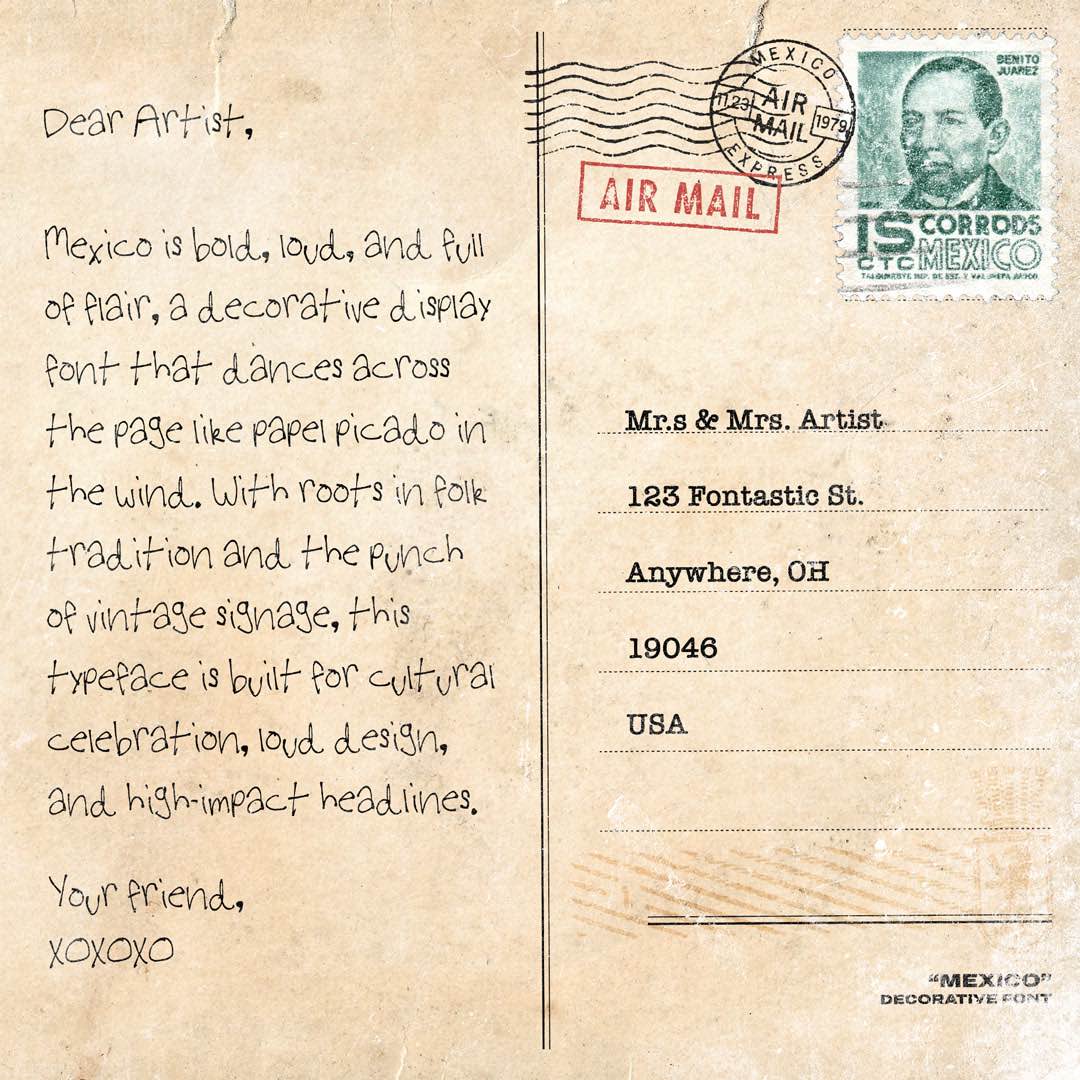 Dear Artist,
Mexico is bold, loud, and full
of flair, a decorative display
font that dances across
the page like papel picado in
the wind. With roots in folk
tradition and the punch
of vintage signage, this
typeface is built for cultural
celebration, loud design,
and high-impact headlines.
Your friend,
XOXOXO
MEXICO
11.23
AIR
MAIL
1979
EXPRESS
AIR MAIL
BENITO
JUAREZ
1S CORRODS
CTC MEXICO
Mr.s & Mrs. Artist
123 Fontastic St.
Anywhere, OH
19046
USA
“MEXICO”
DECORATIVE FONT